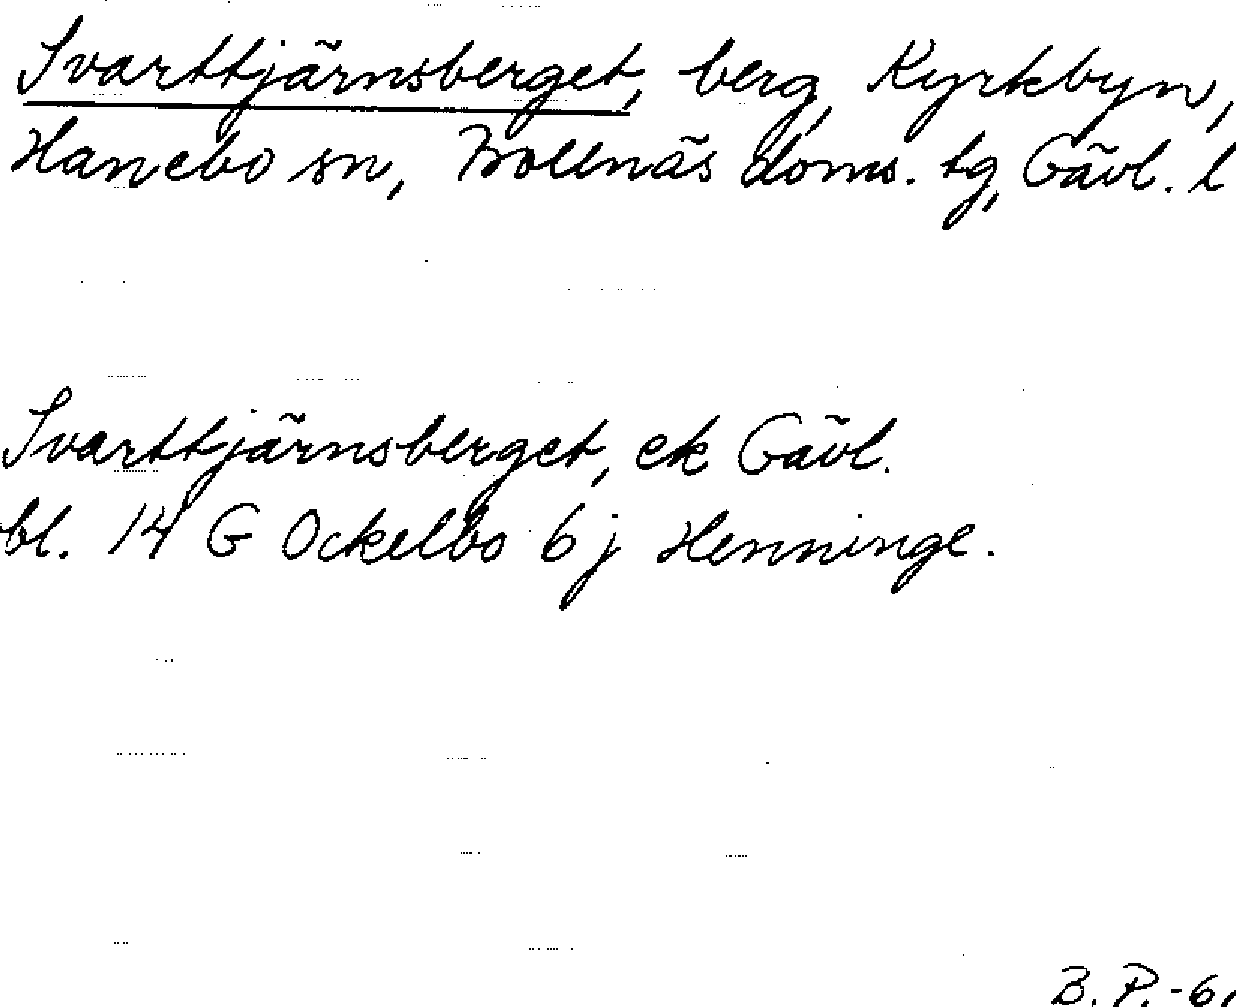 Svarttjärnsberget, berg, Kyrkbyn,
Hanebo sn, Bollnäs doms. tg, Gävl. l
Svarttjärnsberget, ek Gävl.
bl. 14 G Ockelbo 6 j Henninge.
B. P. -6